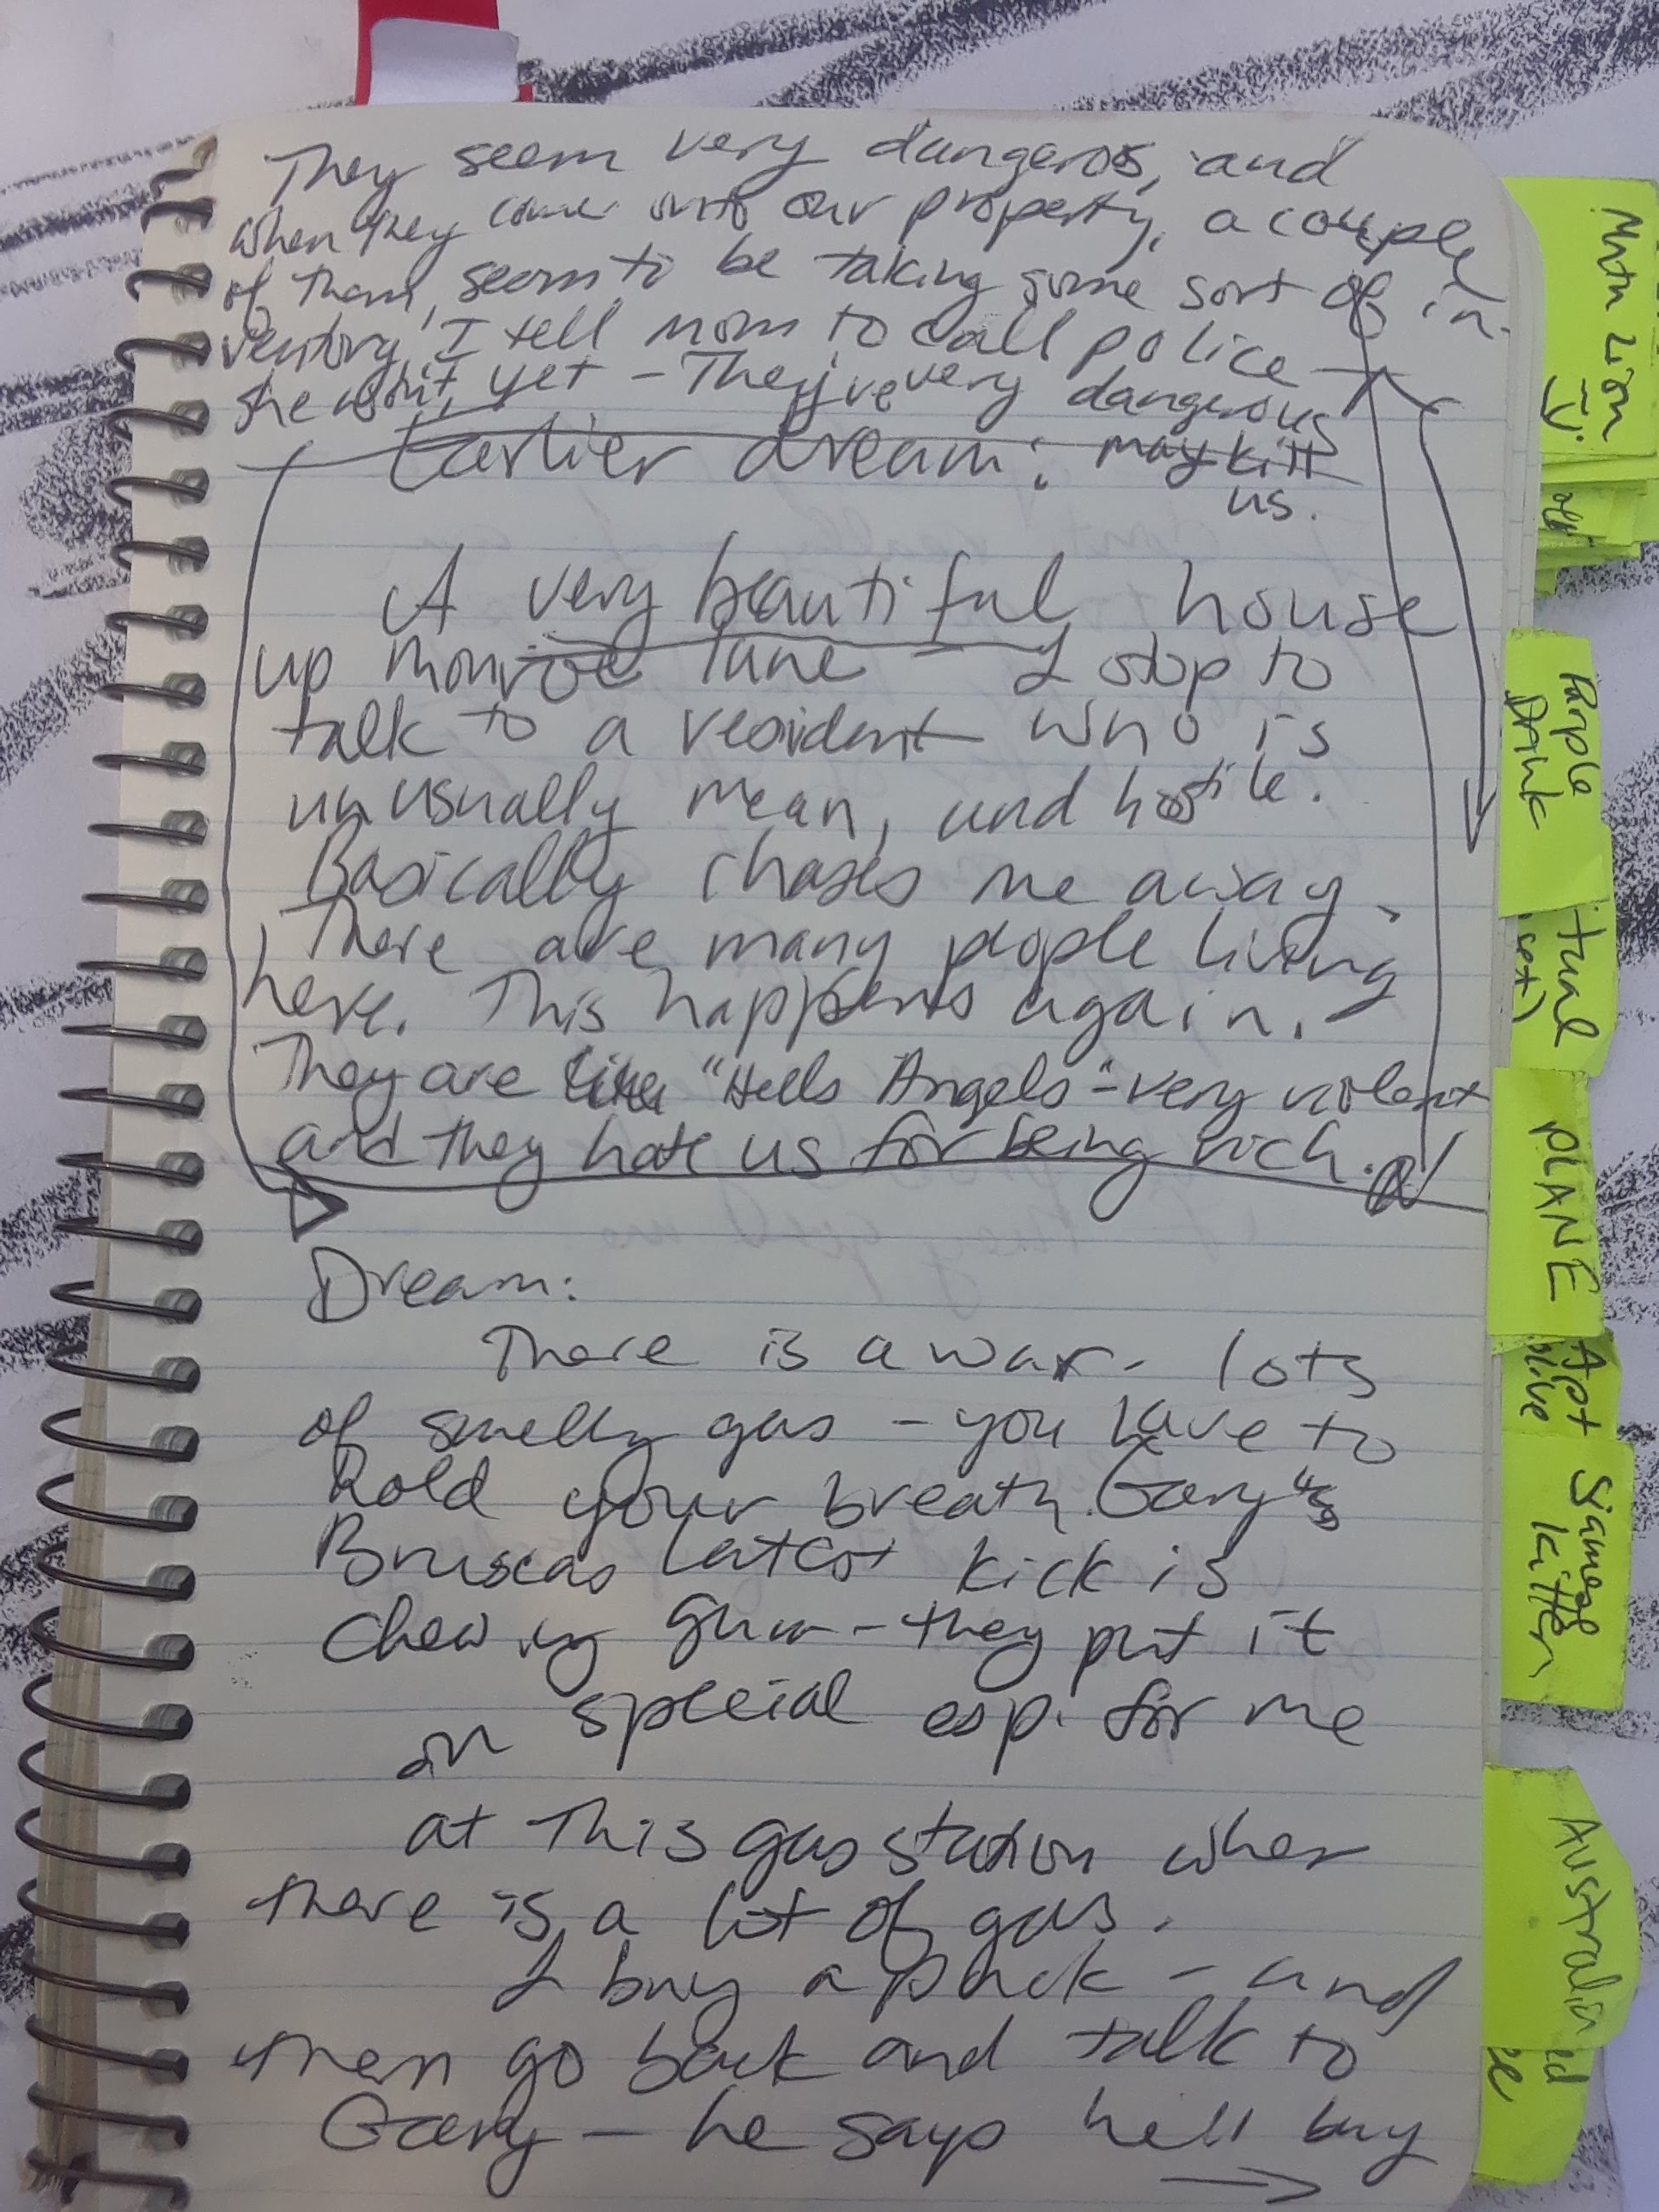 They seem very dangeros, and
when they come onto our property, a couple
of them, seem to be taking some sort of in-
ventory, I tell mom to call police -
she won't, yet - They're very dangerous
may kill
us.
Earlier dream:
A very beautiful house
up Monroe lane - I stop to
talk to a resident who is
unusually mean, and hostile.
Basically chases me away.
There are many people living
here. This happens again.
They are like "Hells Angels" - very violent
and they hate us for being rich.
Dream:
There is a war - lots
of smelly gas - you have to
hold your breath. Gary's
Bruscas latest kick is
chewing gum - they put it
on special esp. for me
at this gas station when
there is a lot of gas.
I buy a pack - and
then go back and talk to
Gary - he says he'll buy
Mntn Lion
IV
Purple
Drink
tual
set)
PLANE
Apt
olive
Siamese
kitten
Australia